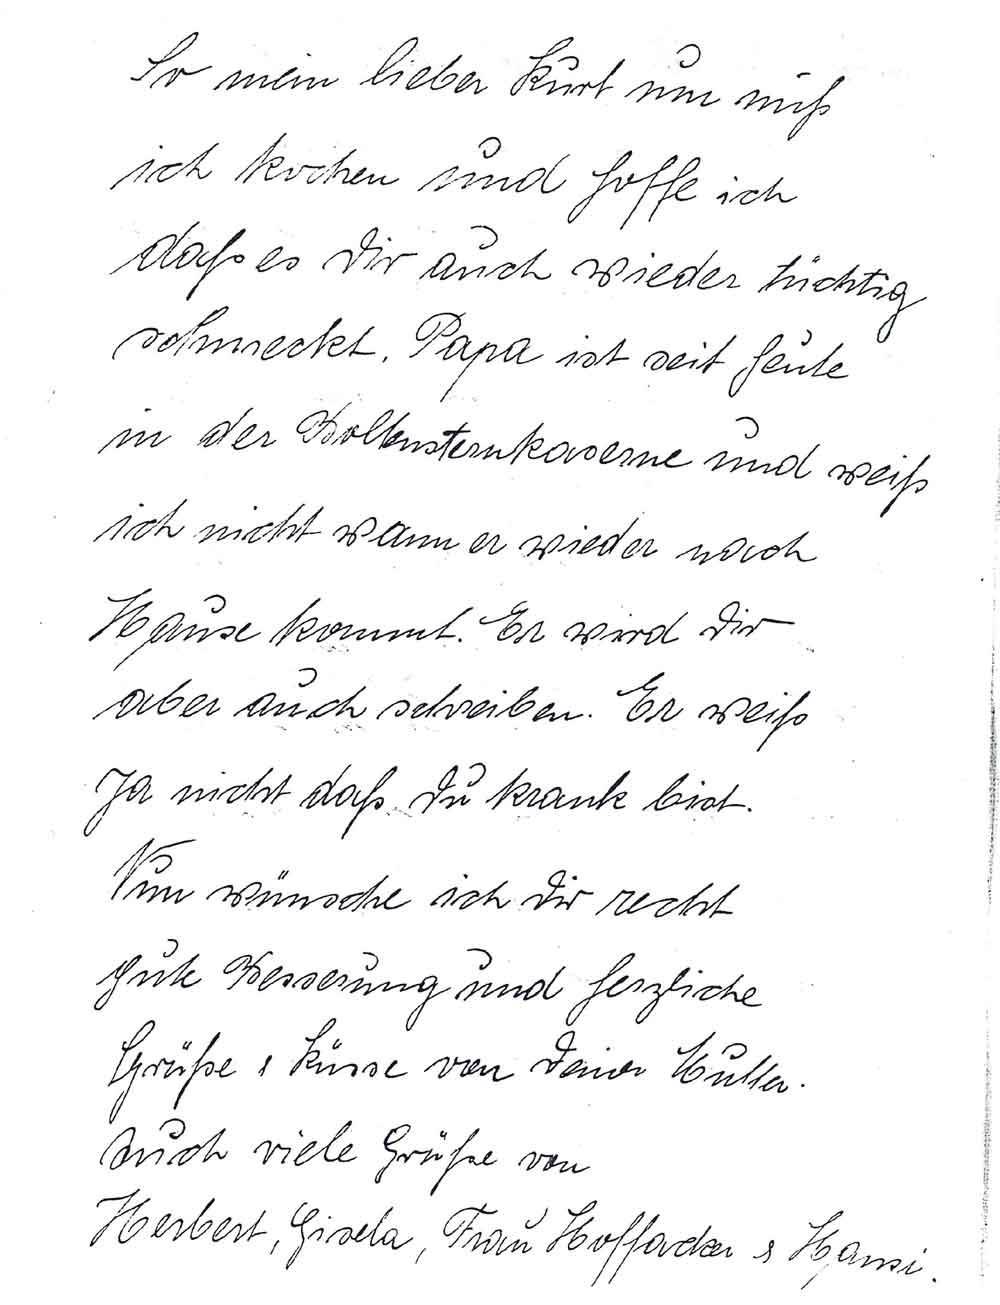 So mein lieber Kurt nun muß
ich kochen und hoffe ich
daß es Dir auch wieder tüchtig
schmeckt. Papa ist seit heute
in der Boltensternkaserne und weiß
ich nicht wann er wieder nach
Hause kommt. Er wird Dir
aber auch schreiben. Er weiß
Ja nicht daß Du krank bist.
Nun wünsche ich Dir recht
gute Besserung und herzliche
Grüße & Küsse von Deiner Mutter.
Auch viele Grüße von
Herbert, Gisela, Frau Hoffacker & Hansi.